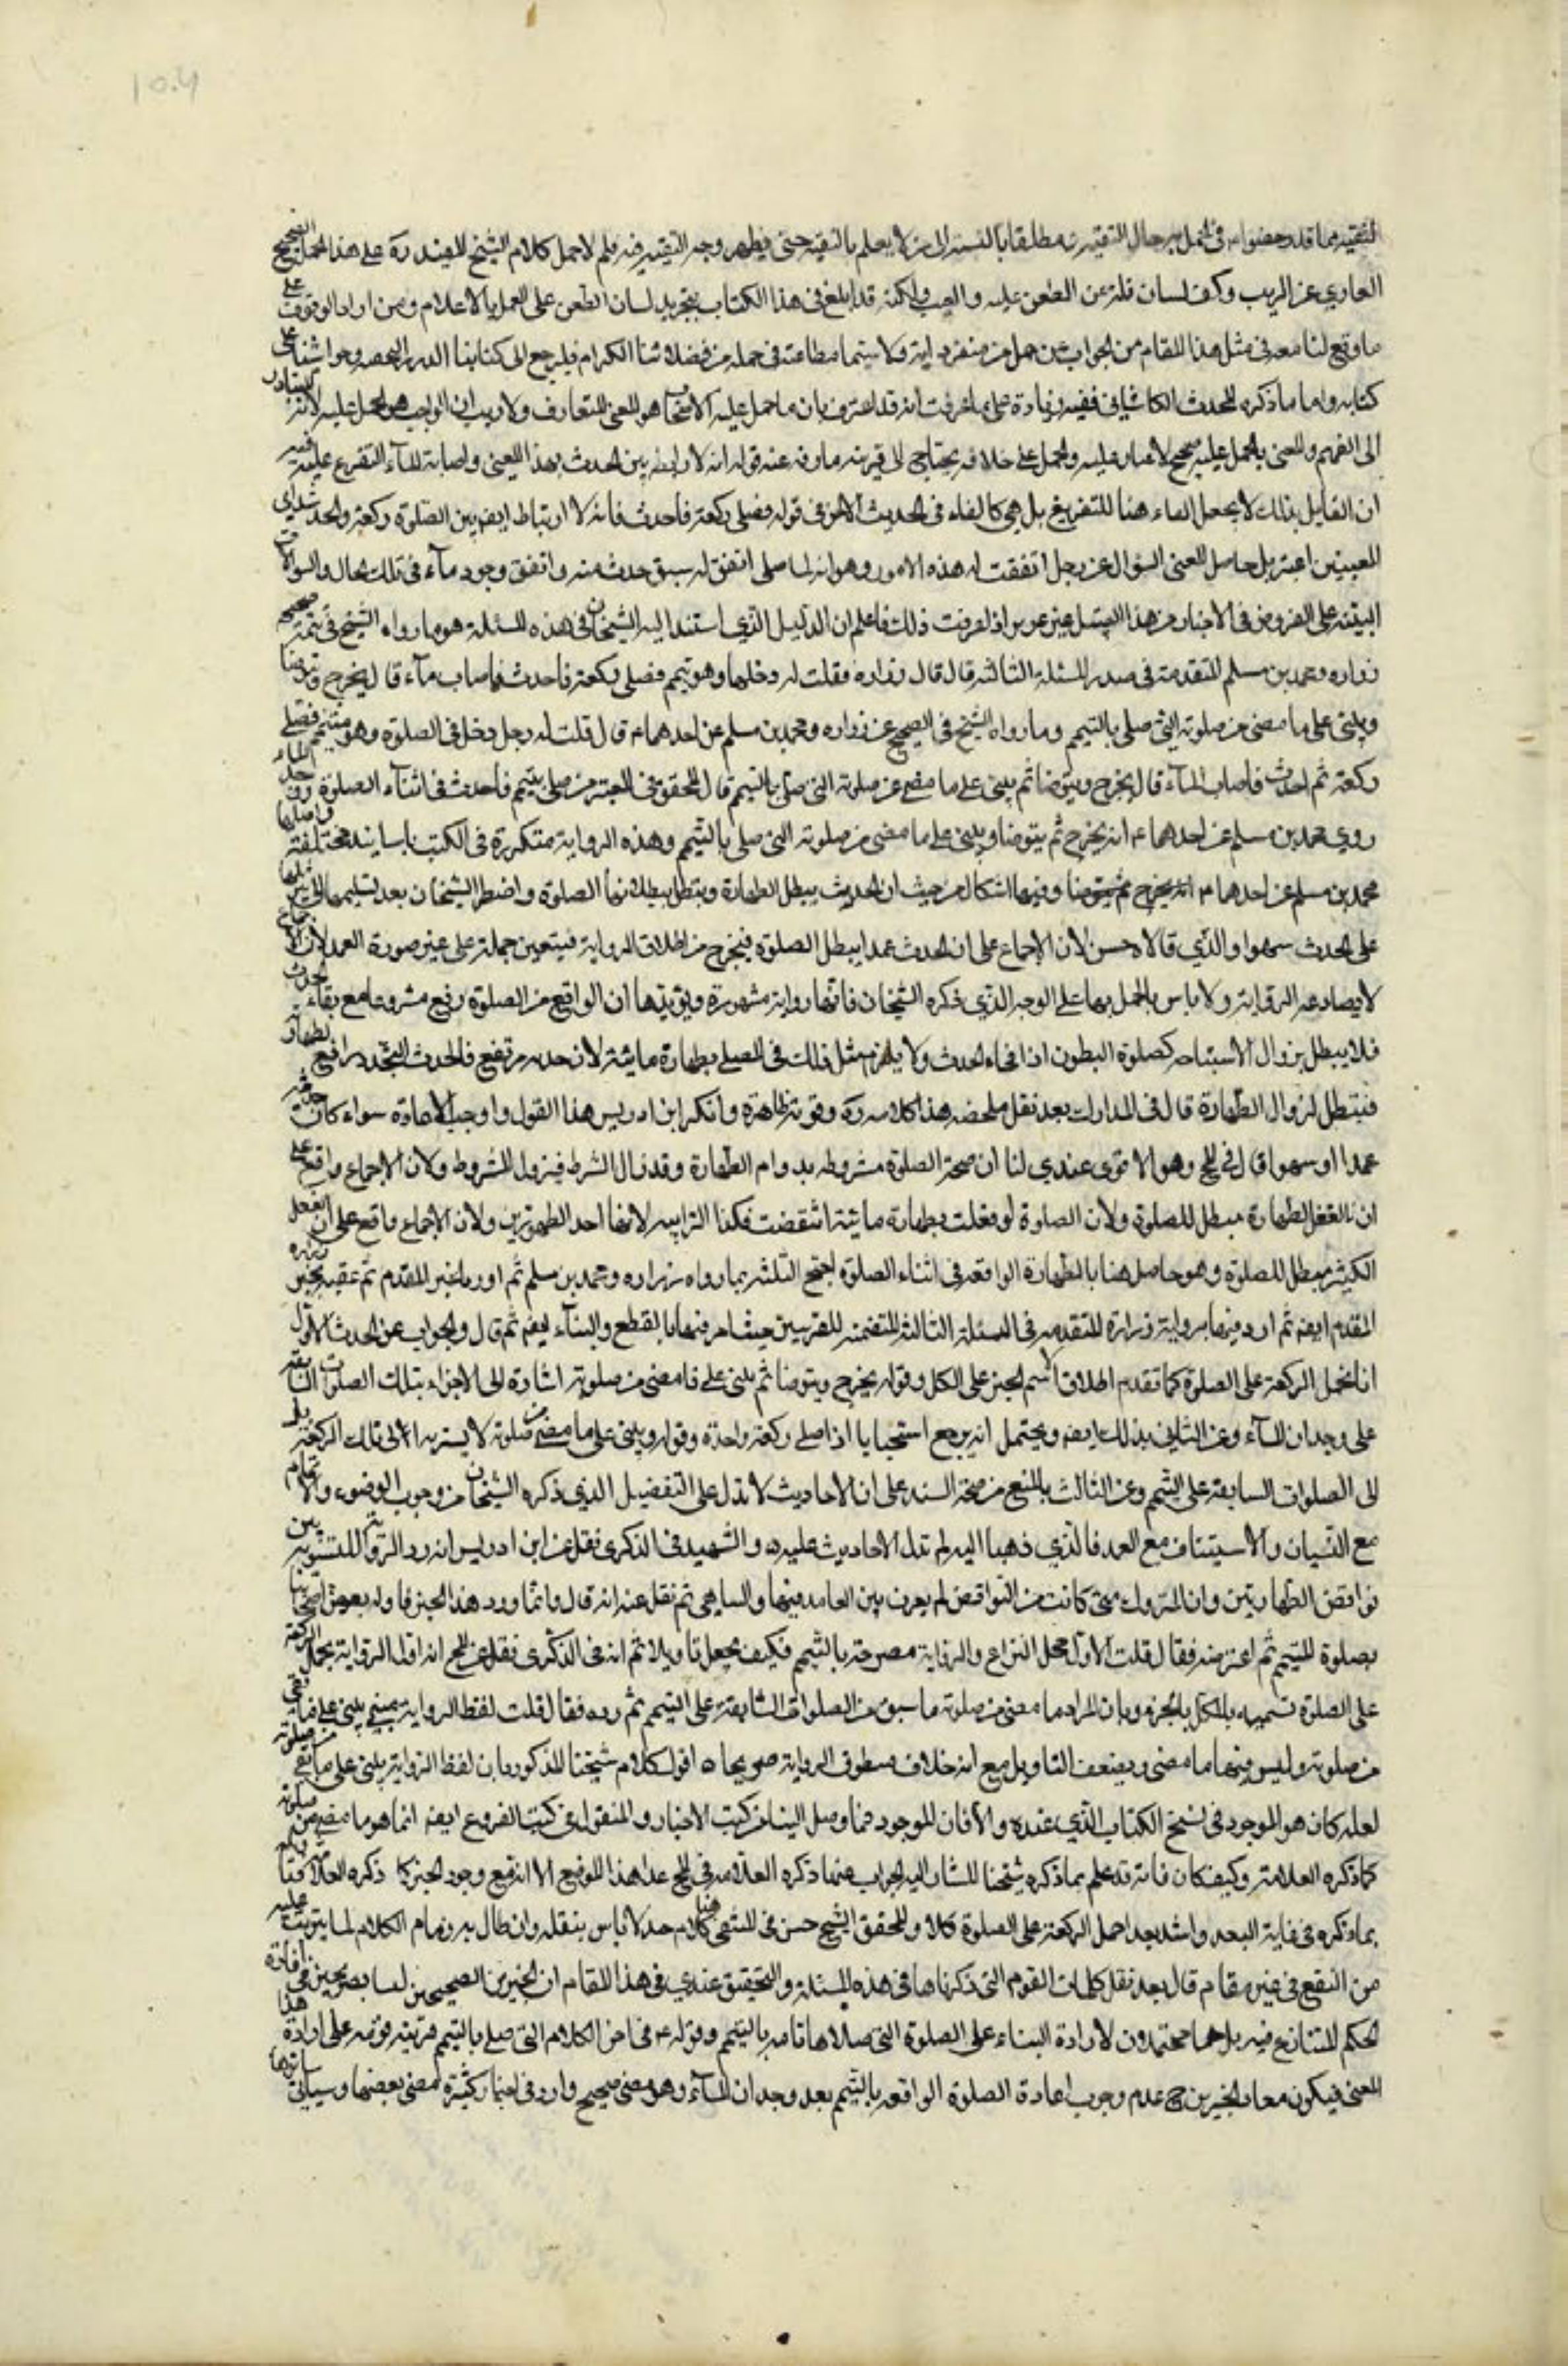 العاري عن الريب وكف لسان قلمه عن الطعن عليه والعيب ولكنه قد ابلغ في هذا الكتاب بتجريد لسان الطعن على العمل بالاعلام ومن اراد الوقوف على
ما وقع لنا معه في مثل هذا المقام من الجواب عن جمل من متفرداته ولا سيما مطاعنه في جملة من فضلائنا الكرام فليرجع الى كتابنا الدرر النجفيه وحواشينا على
كتابه واما ما ذكره المحدث الكاشاني ففيه زيادة على ما عرفت انه قد اعترف بان ما حمل عليه الاصحاب هو المعنى المتعارف ولا ريب ان الواجب هو الحمل عليه لانه المتبادر
الى الفهم والمعنى بالحمل عليه صحيح لا غبار عليه والحمل على خلافه يحتاج الى قرينه صارفه عنه قوله انه لا رابطه بين الحدث بهذا المعنى واصابة الماء للتفريع عليه فيه
ان القايل بذلك لا يجعل الفاء هنا للتفريع بل هي كالفاء في الحديث الاخر في قوله فصلى ركعة فاحدث فانه لا ارتباط ايضا بين الصلوة ركعة والحدث باي
المعنيين اعتبر بل حاصل المعنى السؤال عن رجل اتفقت له هذه الامور وهو انه لما صلى اتفق له سبق حدث منه واتفق وجود ماء في تلك الحال والسؤالات
المبنية على الفروض في الاخبار من هذا القبيل غير عزيز اذا عرفت ذلك فاعلم ان الدليل الذي استند اليه الشيخان في هذه المسئلة هو ما رواه الشيخ في تتمة صحيحة
زراره ومحمد بن مسلم المتقدمة في صدر المسئلة الثالثه قال قال زراره فقلت له دخلها وهو متيمم فصلى ركعة فاحدث فاصاب ماء قال يخرج ويتوضا
ويبنى على ما مضى من صلوته التي صلى بالتيمم وما رواه الشيخ في الصحيح عن زراره ومحمد بن مسلم عن احدهما ع قال قلت له رجل دخل في الصلوة وهو متيمم فصلى
ركعة ثم احدث فاصاب الماء قال يخرج ويتوضا ثم يبنى على ما مضى من صلوته التي صلى بالتيمم قال المحقق في المعتبر من صلى بتيمم فاحدث في اثناء الصلوة ووجد الماء
روى محمد بن مسلم عن احدهما ع انه يخرج ثم يتوضا ويبنى على ما مضى من صلوته التي صلى بالتيمم وهذه الرواية متكررة في الكتب باسانيد مختلفة واصلها
محمد بن مسلم عن احدهما ع وفيها اشكال من حيث ان الحدث يبطل الطهارة وبتطل ببطلانها الصلوة واضطر الشيخان بعد تسليمها الى تنزيلها
على الحدث سهوا والذي قالاه حسن لان الاجماع على ان الحدث عمدا يبطل الصلوة فيخرج من اطلاق الرواية فيتعين حمله على غير صورة العمد لان الاجماع
لا يصادمه الرواية ولا باس بالعمل بها على الوجه الذي ذكره الشيخان فانها رواية مشهورة ويؤيدها ان الواقع من الصلوة وقع مشروعا مع بقاء الحدث
فلا يبطل بزوال الاستباحه كصلوة المبطون اذا فجاه الحدث ولا يلزم مثل ذلك في المصلى بطهارة مائية لان حدثه مرتفع فالحدث المتجدد رافع لطهارته
فتبطل لزوال الطهارة قال في المدارك بعد نقل ملخصه هذا كلامه ره وقوته ظاهرة وانكر ابن ادريس هذا القول واوجب الاعادة سواء كان حدثه
عمدا او سهوا قال في المخ وهو الاقوى عندي لنا ان صحة الصلوة مشروطه بدوام الطهارة وقد زال الشرط فيزول المشروط ولان الاجماع واقع على
ان ناقض الطهارة مبطل للصلوة ولان الصلوة لو فعلت بطهارة مائية انتقضت فكذا الترابيه لانها احد الطهورين ولان الاجماع واقع على ان الفعل
الكثير مبطل للصلوة وهو حاصل هنا بالطهارة الواقعه في اثناء الصلوة احتج الثلثه بما رواه زراره ومحمد بن مسلم ثم اورد الخبر المتقدم ثم عقبه بخبر زراره
المتقدم ايضا ثم اورد فيها رواية زرارة المتقدمه في المسئلة الثالثه المتضمنه للضربين حيث امر فيها بالقطع والبناء ايضا ثم قال والجواب عن الحديث الاول
انا نحمل الركعة على الصلوة كما تقدم اطلاقا لاسم الجزء على الكل وقوله يخرج ويتوضا ثم يبنى على ما مضى من صلوته اشارة الى الاجتزاء بتلك الصلوات السابقة
على وجدان الماء وعن الثاني بذلك ايضا ويحتمل انه يرجع استحبابا اذا صلى ركعة واحدة وقوله ويبنى على ما مضى من صلوته لا يشير به الى تلك الركعة بل
الى الصلوات السابقة على التيمم وعن الثالث بالمنع من صحة السند على ان الاحاديث لا تدل على التفصيل الذي ذكره الشيخان من وجوب الوضوء والاتمام
مع النسيان والاستيناف مع العمد فالذي ذهبا اليه لم تدل الاحاديث عليه والشهيد في الذكرى نقل عن ابن ادريس انه رد الرواية للتسوية بين
نواقض الطهارتين وان التروك متى كانت من النواقض لم يفرق بين العامد فيها والساهي ثم نقل عنه انه قال وانما ورد هذا الخبر فاوله بعض اصحابنا
بصلوة المتيمم ثم اعترضه فقال قلت الاول محل النزاع والرواية مصرحة بالتيمم فكيف يجعل تاويلا ثم انه في الذكرى نقل عن المخ انه اول الرواية بحمل الركعة
على الصلوة تسميه للكل بالجزء وبان المراد بما مضى من صلوته ما سبق من الصلوات السابقة على التيمم ثم رده فقال قلت لفظ الرواية يبنى على ما بقي
من صلوته وليس فيها ما مضى ويضعف التاويل مع انه خلاف منطوق الرواية صريحا ه اقول كلام شيخنا المذكور وان لفظ الرواية يبنى على ما بقي من صلوته
لعله كان هو الموجود في نسخ الكتاب الذي عنده والا فان الموجود فيما وصل الينا من كتب الاخبار والمنقول في كتب الفروع ايضا انما هو ما مضى من صلوته
كما ذكره العلامة وكيف كان فانه قد علم بما ذكره شيخنا المشار اليه الجواب عما ذكره العلامه في المخ عدا هذا الموضع
بما ذكره في غاية البعد واشد بعدا حمل الركعة على الصلوة كلا وللمحقق الشيخ حسن في المنتقى هنا كلام جيد لا باس بنقله وان طال به زمام الكلام لما يترتب عليه
من النفع في غير مقام قال بعد نقل كلمات القوم التي ذكرناها في هذه المسئلة والتحقيق عندي في هذا المقام ان الخبرين الصحيحين ليسا بصريحين في افادة
الحكم المتنازع فيه بل هما محتملان لارادة البناء على الصلوة التي صلاها تامه بالتيمم وقوله ع في اخر الكلام التي صلى بالتيمم قرينه قويه على ارادة هذا
المعنى فيكون مفاد الخبرين ح عدم وجوب اعادة الصلوة الواقعه بالتيمم بعد وجدان الماء وهو معنى صحيح وارد في اخبار كثيرة مضى بعضها وسياتي سائرها